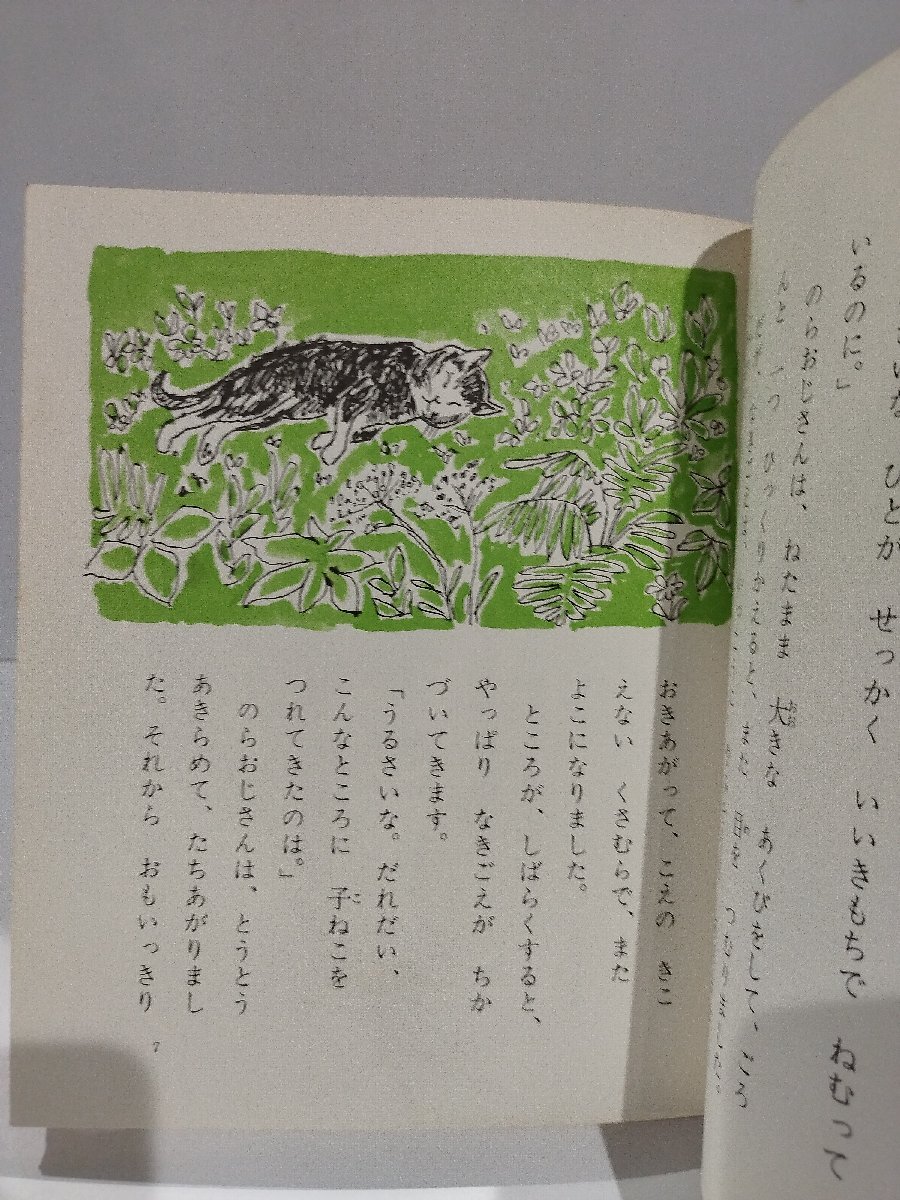 ひとが せっかく いいきもちで ねむって
いるのに。」
のらおじさんは、ねたまま 大きな あくびをして、
おきあがって、こえの きこ
えない くさむらで、また
よこになりました。
ところが、しばらくすると、
やっぱり なきごえが ちか
づいてきます。
「うるさいな。だれだい、
こんなところに 子ねこを
つれてきたのは。」
のらおじさんは、とうとう
あきらめて、たちあがりまし
た。それから おもいっきり
7